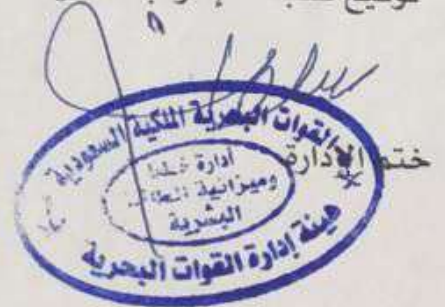 ختم الإدارة
القوات البحرية الملكية السعودية
إدارة خطط
وميزانية
البشرية
هيئة إدارة القوات البحرية